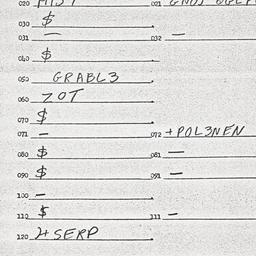 020
021
030 $
031 — 032 —
040 $
050 GRABL3
060 ZOT
070 $
071 — 072 +POL3NEN
080 $ 081 —
090 $ 091 —
100 —
110 $ 111 —
120 SERP